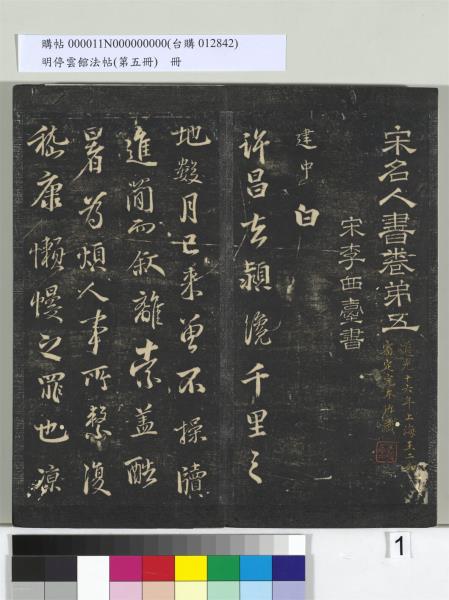 購帖 000011N000000000(台購 012842)
明停雲館法帖(第五冊) 冊
宋名人書卷第五
宋李西臺書
建中白
許昌去潁纔千里之
地數月已來曾不操牘
進簡而敘離索蓋酷
暑為煩人事所繫復
嵇康懶慢之罪也諒
1